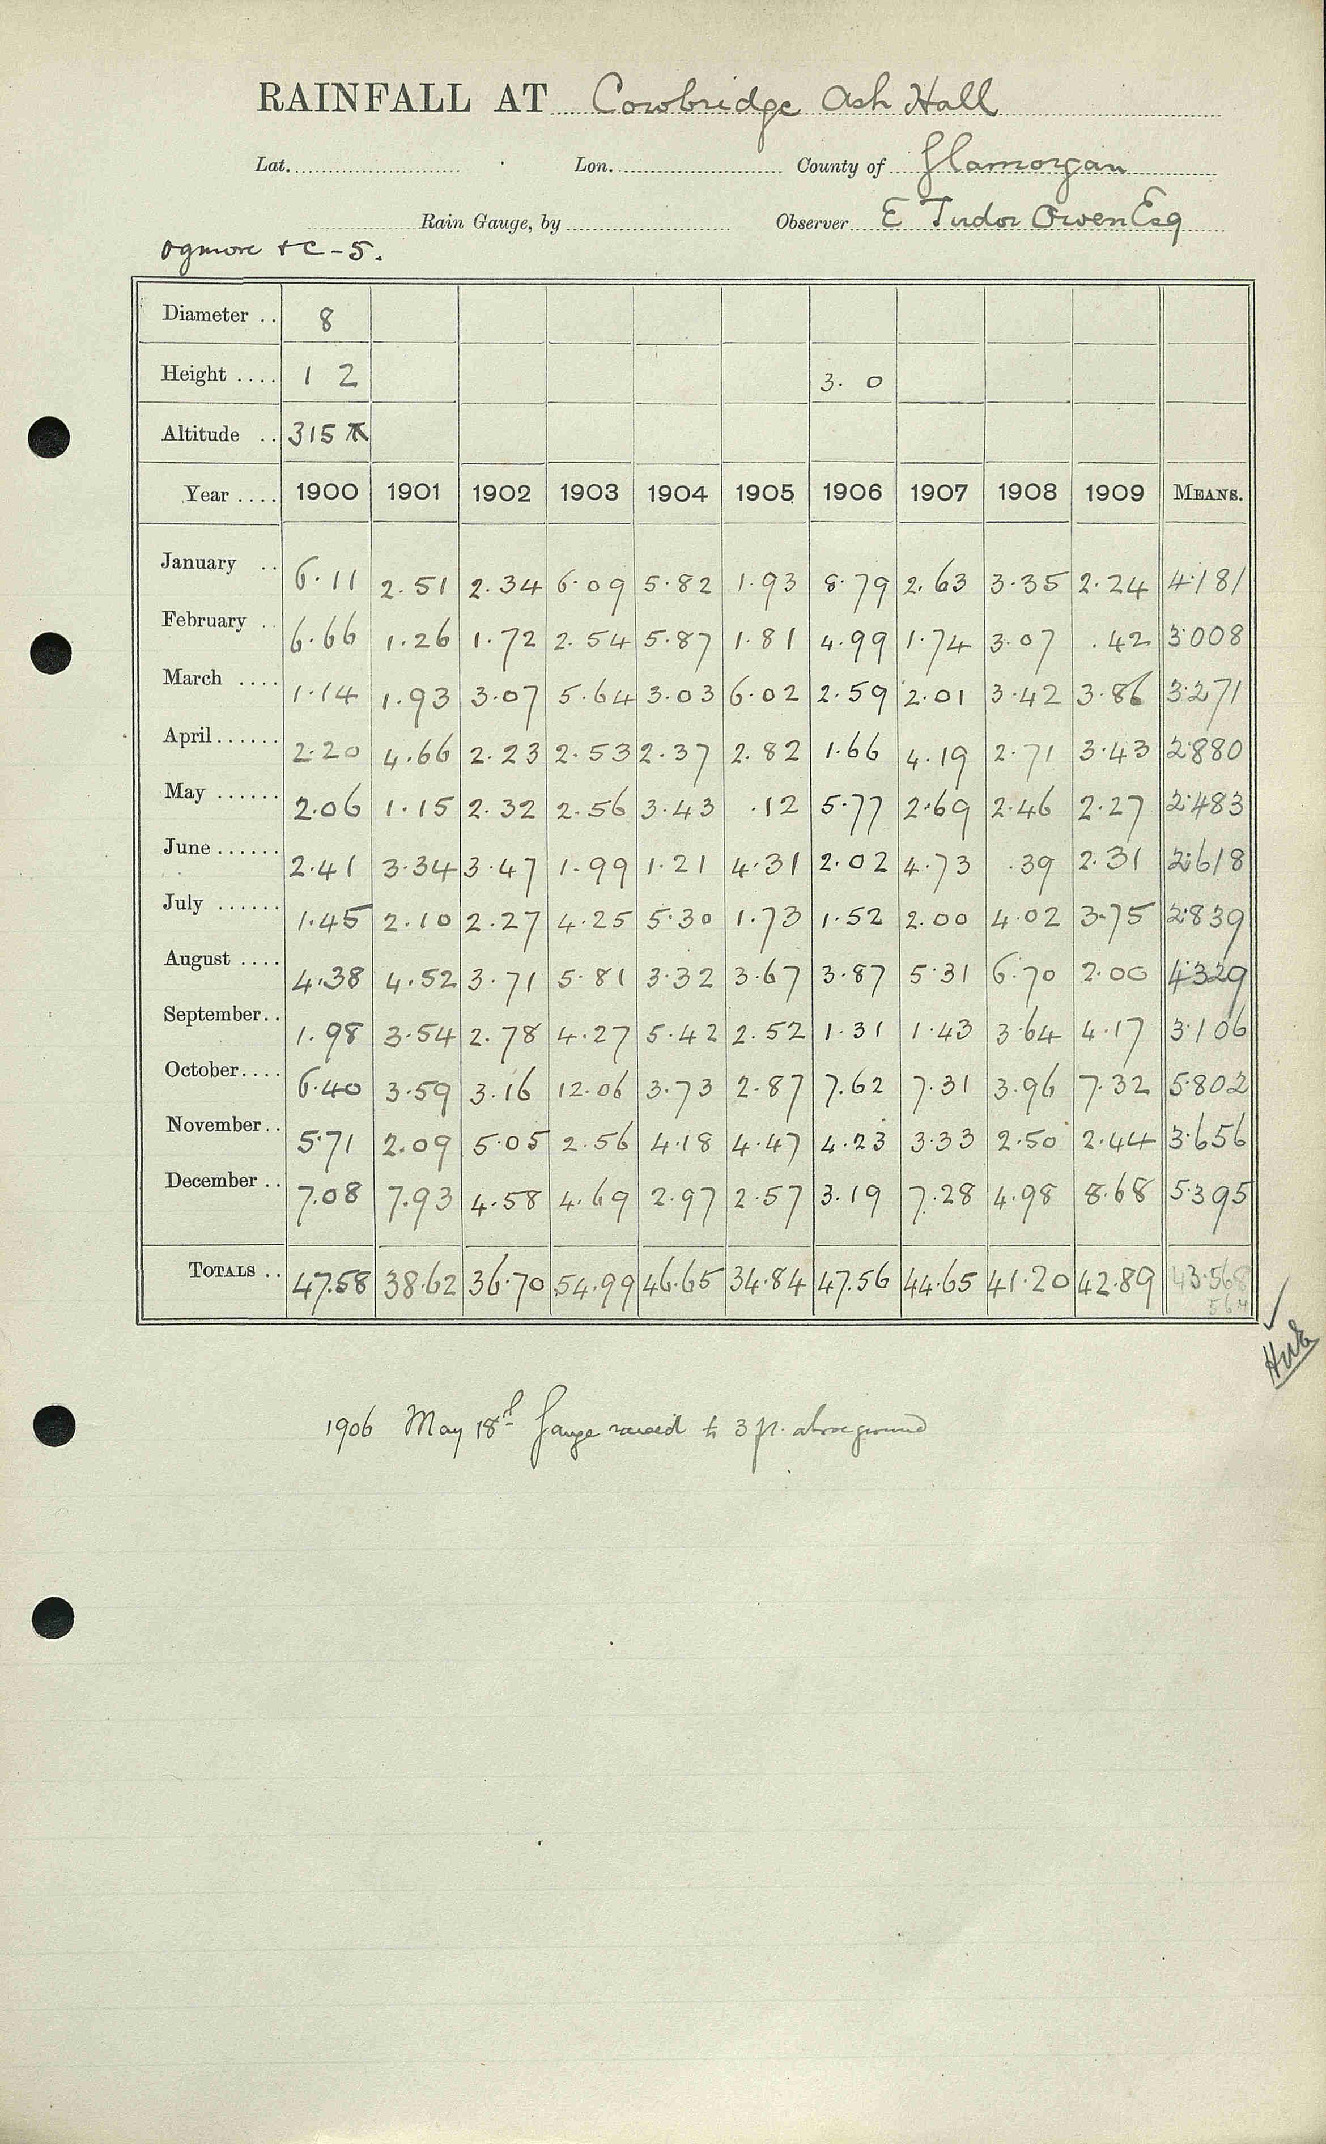 RAINFALL AT Cowbridge Ash Hall
Lat. Lon. County of Glamorgan
Rain Gauge, by Observer E Tudor Owen Esq
Ogmore &c - 5.
Diameter .. 8
Height .... 1 2 3. 0
Altitude .. 315
Year .... 1900 1901 1902 1903 1904 1905 1906 1907 1908 1909 MEANS.
January .. 6.11 2.51 2.34 6.09 5.82 1.93 8.79 2.63 3.35 2.24 4.181
February .. 6.66 1.26 1.72 2.54 5.87 1.81 4.99 1.74 3.07 .42 3.008
March .... 1.14 1.93 3.07 5.64 3.03 6.02 2.59 2.01 3.42 3.86 3.271
April...... 2.20 4.66 2.23 2.53 2.37 2.82 1.66 4.19 2.71 3.43 2.880
May ...... 2.06 1.15 2.32 2.56 3.43 .12 5.77 2.69 2.46 2.27 2.483
June ...... 2.41 3.34 3.47 1.99 1.21 4.31 2.02 4.73 .39 2.31 2.618
July ...... 1.45 2.10 2.27 4.25 5.30 1.73 1.52 2.00 4.02 3.75 2.839
August .... 4.38 4.52 3.71 5.81 3.32 3.67 3.87 5.31 6.70 2.00 4.329
September.. 1.98 3.54 2.78 4.27 5.42 2.52 1.31 1.43 3.64 4.17 3.106
October.... 6.40 3.59 3.16 12.06 3.73 2.87 7.62 7.31 3.96 7.32 5.802
November.. 5.71 2.09 5.05 2.56 4.18 4.47 4.23 3.33 2.50 2.44 3.656
December .. 7.08 7.93 4.58 4.69 2.97 2.57 3.19 7.28 4.98 8.68 5.395
TOTALS .. 47.58 38.62 36.70 54.99 46.65 34.84 47.56 44.65 41.20 42.89 43.568
1906 May 18th Gauge raised to 3 ft. above ground